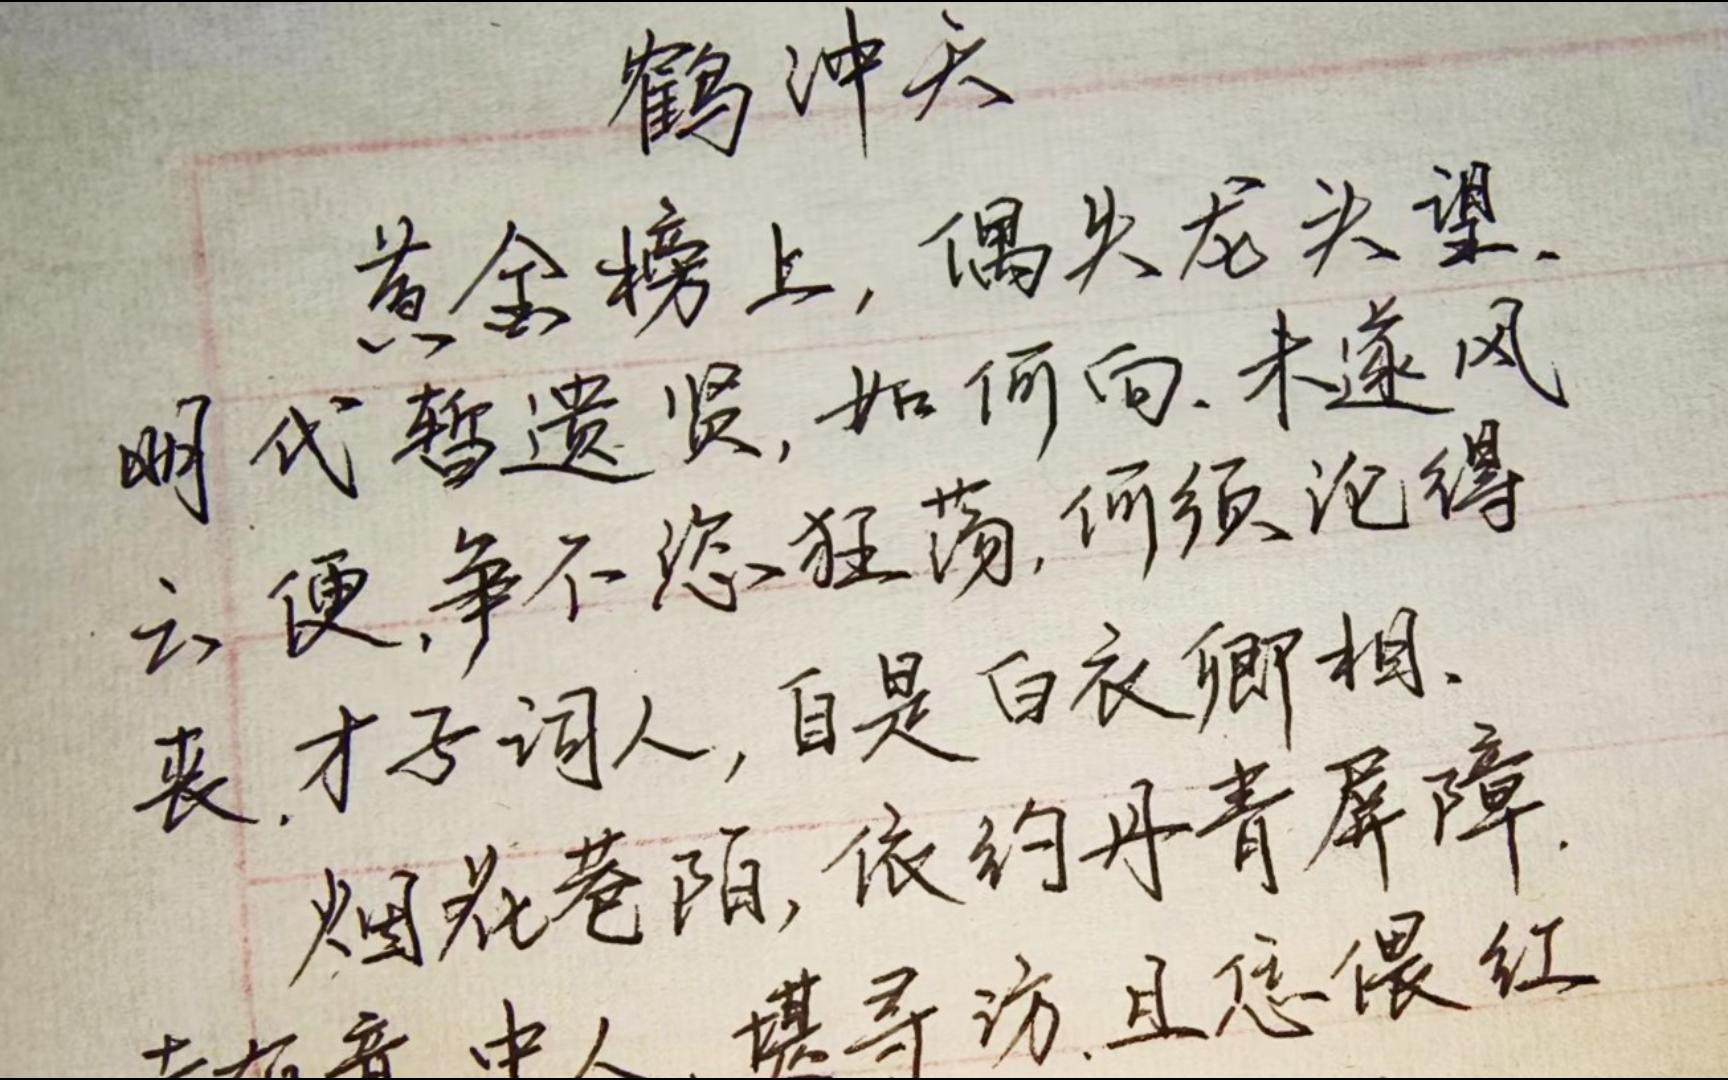 鹤冲天
黄金榜上，偶失龙头望.
明代暂遗贤，如何向.未遂风
云便，争不恣狂荡，何须论得
丧.才子词人，自是白衣卿相.
烟花巷陌，依约丹青屏障.
有意中人，堪寻访.且恁偎红